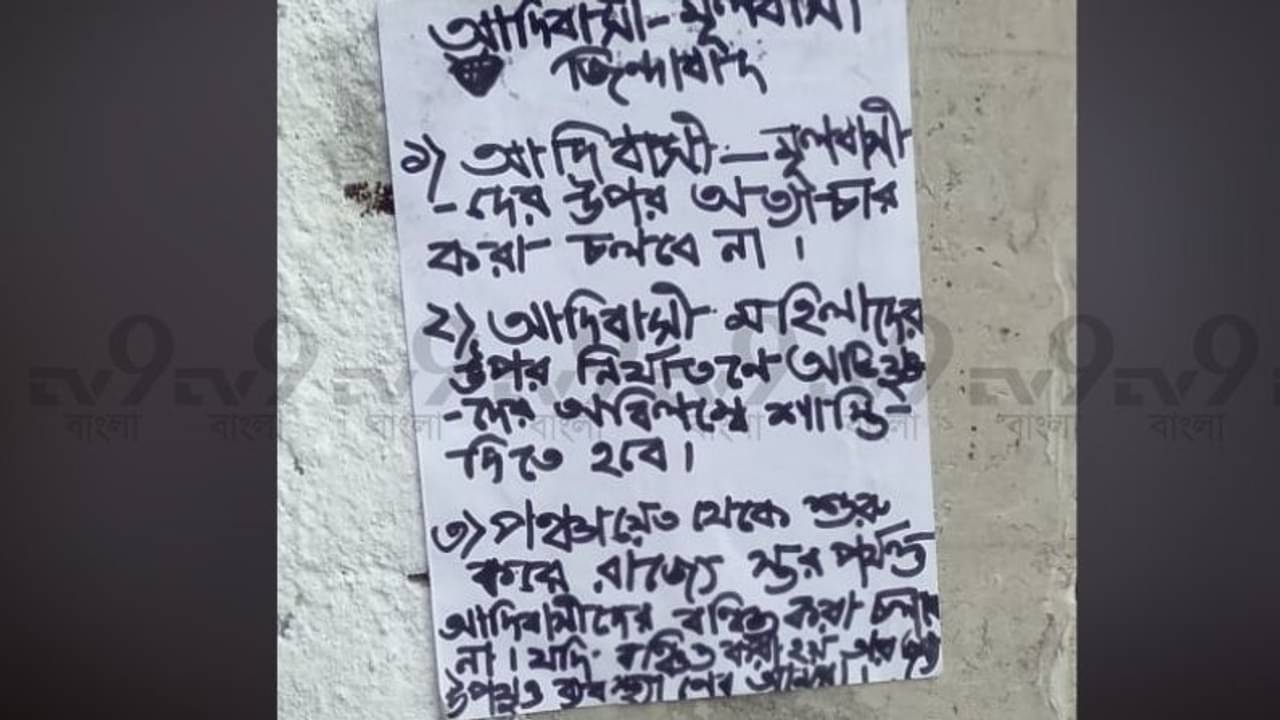 আদিবাসী-মূলবাসী
জিন্দাবাদ
১) আদিবাসী-মূলবাসী
-দের উপর অত্যাচার
করা চলবে না ।
২) আদিবাসী মহিলাদের
উপর নির্যাতনে
-দের অবিলম্বে শাস্তি-
দিতে হবে ।
৩) পঞ্চায়েত থেকে শুরু
করে রাজ্যে স্তর পর্যন্ত
আদিবাসীদের বঞ্চিত করা চলবে
না । যদি বঞ্চিত করা হয় তার জন্য
উপযুক্ত ব্যবস্থা নেব আমরা ।
TV9 TV9 TV9 TV9 TV9 TV9 TV9 TV9
বাংলা বাংলা বাংলা বাংলা বাংলা বাংলা বাংলা বাংলা